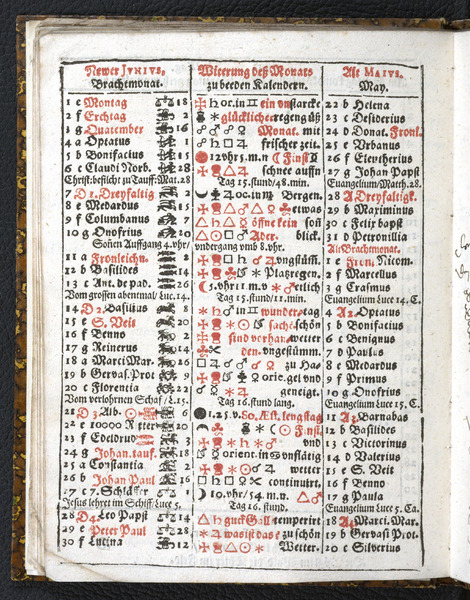 Newer JVNIVS. Witerung deß Monats Alt MAIVS.
Brachtmonat. zu beeden Kalendern. May.
1 e Montag 18 ♄ or. in ♊ ein vnstarcke 22 b Helena
2 f Erchtag 2 glücklicher regengüß 23 c Desiderius
3 g Quatember 16 ☍ ♂ ☍ ♀ Monat. mit 24 d Donat. Fronl.
4 a Optatus 1 ☍ ♄ frischer zeit. 25 e Vrbanus
5 b Bonifacius 15 12 vhr 5. m. n ☾ Finst 26 f Eleutherius
6 c Claudi Norb. 28 schnee auffn 27 g Johan Papst
Christ. befilcht zu Tauff. Mat. 28 Tag 15. stund/48. min. Evangelium/Matth. 28.
7 D1. Dreyfaltig 2 ♃ oc. in Bergen. 28 A Dreyfaltigk.
8 e Medardus 15 etwas 29 b Mariminus
9 f Columbanus 7 öffne kein soñ 30 c Felix bapst
10 g Onofrius 20 Ader. blick. 31 d Petronillia
Soñen Auffgang 4. vhr/ vndergang vmb 8. vhr. Alt Brachmonat.
11 a Fronleichn. 2 vngstüm̃. 1 e Nicom.
12 b Basilides 14 Platzregen. 2 f Marcellus
13 c Ant. de pad. 26 5. vhr 11. m. v 3 g Erasmus
Vom grossen abentmal/ Luc. 14. Tag 15. stund/11. min. Evangelium Luce 14. C.
14 D2. Basilius 8 ♂ in ♊ wunder tag 4 A2. Optatus
15 e S. Veit 20 sache schön 5 b Bonifacius
16 f Benno 2 sind vorhan wetter 6 c Benignus
17 g Reinerus 14 den. vngestümm. 7 d Paulus
18 a Marci Mar. 26 zu Ha- 8 e Medardus
19 b Gervas. Prot 9 orie. gel vnd 9 f Primus
20 c Florentia 22 geneigt. 10 g Onofrius
Vom verlohrnen Schaf/ L. 15. Tag 16. stund lang. Evangelium Luce 15. C.
21 D3. Alb. 6 1. 25. v. So. Æst. lengstag 11 A3. Barnabas
22 e 10000 Ritter 20 Finst. 12 b Basilides
23 f Edeldrud 3 vnd 13 c Victorinus
24 g Johan. tauf. 18 orient. in vnstätig 14 d Valerius
25 a Constantia 2 wetter 15 e S. Veit
26 b Johan Paul 16 continuirt. 16 f Benno
27 c 7. Schläffer 1 10. vhr/54. m. v. 17 g Paula
Jesus lehret im Schiff/ Luce 5. Evangelium Luce 5. Ca.
28 D4. Leo Papst 14 gut Gall temperirt 18 A4. Marci. Mar.
29 e Peter Paul 28 was ist das e zu schön 19 b Gervasi Prot.
30 f Lucina 12 Wetter. 20 c Silverius